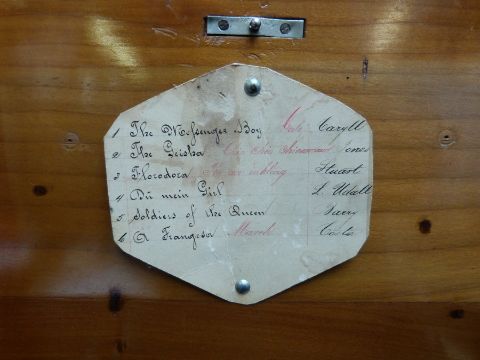 1 The Messenger Boy Caryll
2 The Geisha Jones
3 Florodora Stuart
4 Du mein Girl L. Udall
5 Soldiers of the Queen
6 A Frangesa March Costa